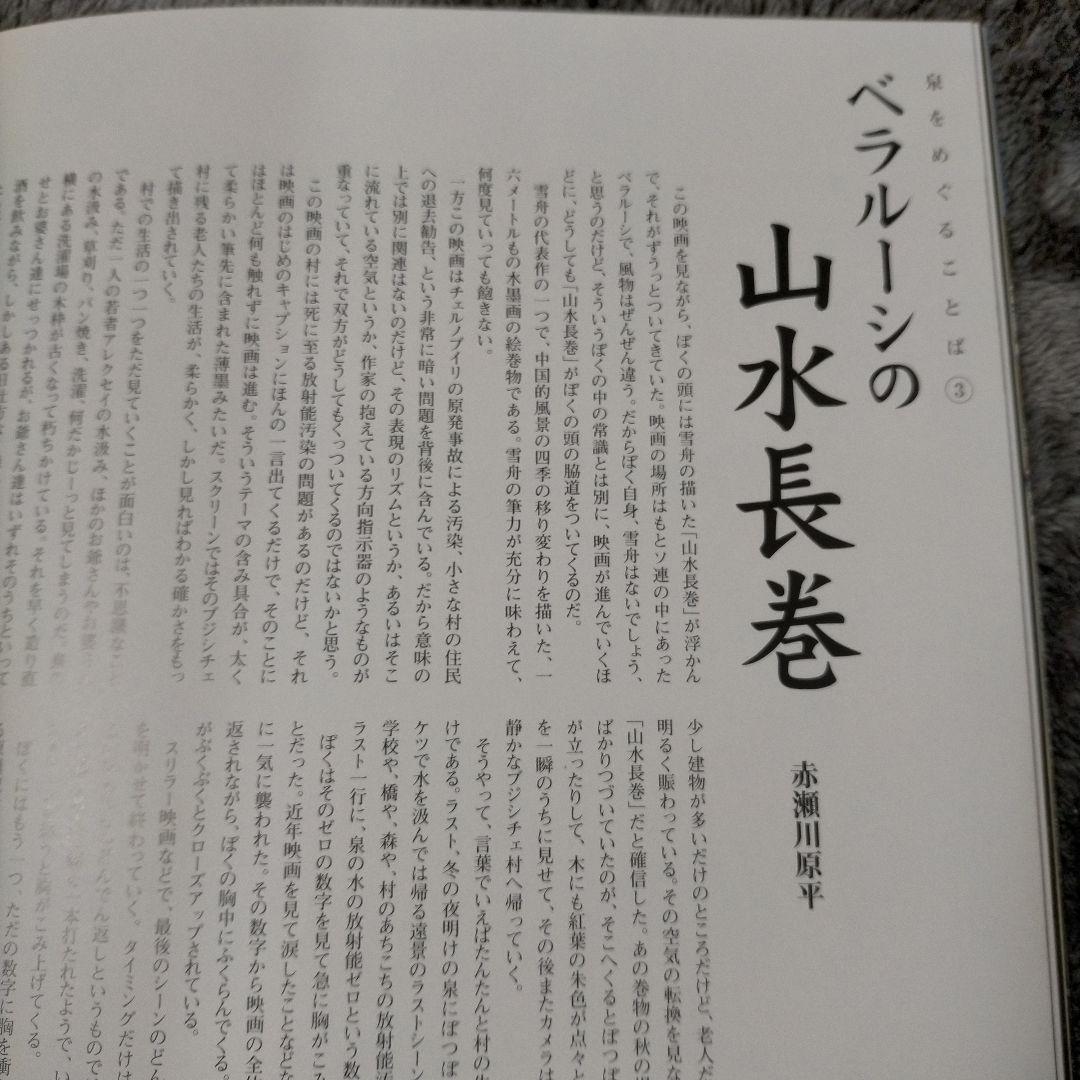 泉をめぐることば③
ベラルーシの
山水長巻
赤瀬川原平
この映画を見ながら、ぼくの頭には雪舟の描いた「山水長巻」が浮かん
で、それがずうっとついてきていた。映画の場所はもとソ連の中にあった
ベラルーシで、風物はぜんぜん違う。だからぼく自身、雪舟はないでしょう、
と思うのだけど、そういうぼくの中の常識とは別に、映画が進んでいくほ
どに、どうしても「山水長巻」がぼくの頭の脇道をついてくるのだ。
雪舟の代表作の一つで、中国的風景の四季の移り変わりを描いた、一
六メートルもの水墨画の絵巻物である。雪舟の筆力が充分に味わえて、
何度見ていっても飽きない。
一方この映画はチェルノブイリの原発事故による汚染、小さな村の住民
への退去勧告、という非常に暗い問題を背後に含んでいる。だから意味の
上では別に関連はないのだけど、その表現のリズムというか、あるいはそこ
に流れている空気というか、作家の抱えている方向指示器のようなものが
重なっていて、それで双方がどうしてもくっついてくるのではないかと思う。
この映画の村には死に至る放射能汚染の問題があるのだけど、それ
は映画のはじめのキャプションにほんの一言出てくるだけで、そのことに
はほとんど何も触れずに映画は進む。そういうテーマの含み具合が、太く
て柔らかい筆先に含まれた薄墨みたいだ。スクリーンではそのブジシチェ
村に残る老人たちの生活が、柔らかく、しかし見ればわかる確かさをもっ
て描き出されていく。
村での生活の一つ一つをただ見ていくことが面白いのは、不思議なこ
である。ただ一人の若者アレクセイの水汲み、ほかのお爺さんやお婆
の水汲み、草刈り、パン焼き、洗濯、何だかじーっと見てしまうのだ。
横にある洗濯場の木枠が古くなって朽ちかけている。それを早く造り直
せとお婆さん達にせっつかれるが、お爺さん達はいずれそのうちといって
酒を飲みながら、しかしある日
少し建物が多いだけのところだけど、老人だ
明るく賑わっている。その空気の転換を見な
「山水長巻」だと確信した。あの巻物の秋の
ばかりつづいていたのが、そこへくるとぽつぽ
が立ったりして、木にも紅葉の朱色が点々と
を一瞬のうちに見せて、その後またカメラは
静かなブジシチェ村へ帰っていく。
そうやって、言葉でいえばたんたんと村の生
けである。ラスト、冬の夜明けの泉にぽつぽ
ケツで水を汲んでは帰る遠景のラストシーン
学校や、橋や、森や、村のあちこちの放射能汚
ラスト一行に、泉の水の放射能ゼロという数
ぼくはそのゼロの数字を見て急に胸がこみ
とだった。近年映画を見て涙したことなどな
に一気に襲われた。その数字から映画の全
返されながら、ぼくの胸中にふくらんでくる。
がぶくぶくとクローズアップされている。
スリラー映画などで、最後のシーンのどん
を覗かせて終わっていく。タイミングだけは
んでん返しというもので
一本打たれたようで、い
うと胸がこみ上げてくる。
ぼくにはもう一つ、ただの数字に胸を衝